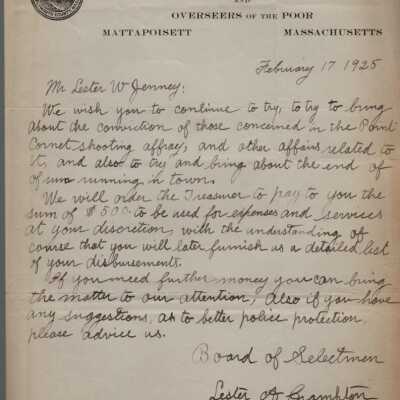 AND
OVERSEERS OF THE POOR
MATTAPOISETT MASSACHUSETTS
February 17 1925
Mr Lester W Jenney:
We wish you to continue to try, to try to bring
about the conviction of those concerned in the Point
Cornet shooting affray, and other affairs related to
it, and also to try and bring about the end
of rum running in town.
We will order the Treasurer to pay to you the
sum of $500 to be used for expenses and services
at your discretion, with the understanding of
course that you will later furnish us a detailed list
of your disbursements.
If you need further money you can bring
the matter to our attention, Also if you have
any suggestions, as to better police protection,
please advice us.
Board of Selectmen
Lester A Crampton